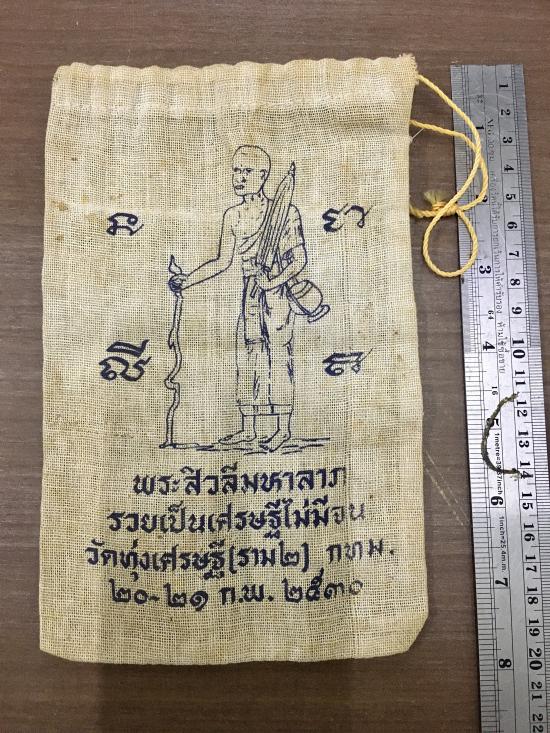 พระสิวลีมหาลาภ
รวยเป็นเศรษฐีไม่มีจน
วัดทุ่งเศรษฐี(ราม๒) กทม.
๒๐-๒๑ ก.พ. ๒๕๓๐
1 2 3 4 5 6 7 8 9 10 11 12 13 14 15 16 17 18 19 20 21 22
1 3 4 6 7 8